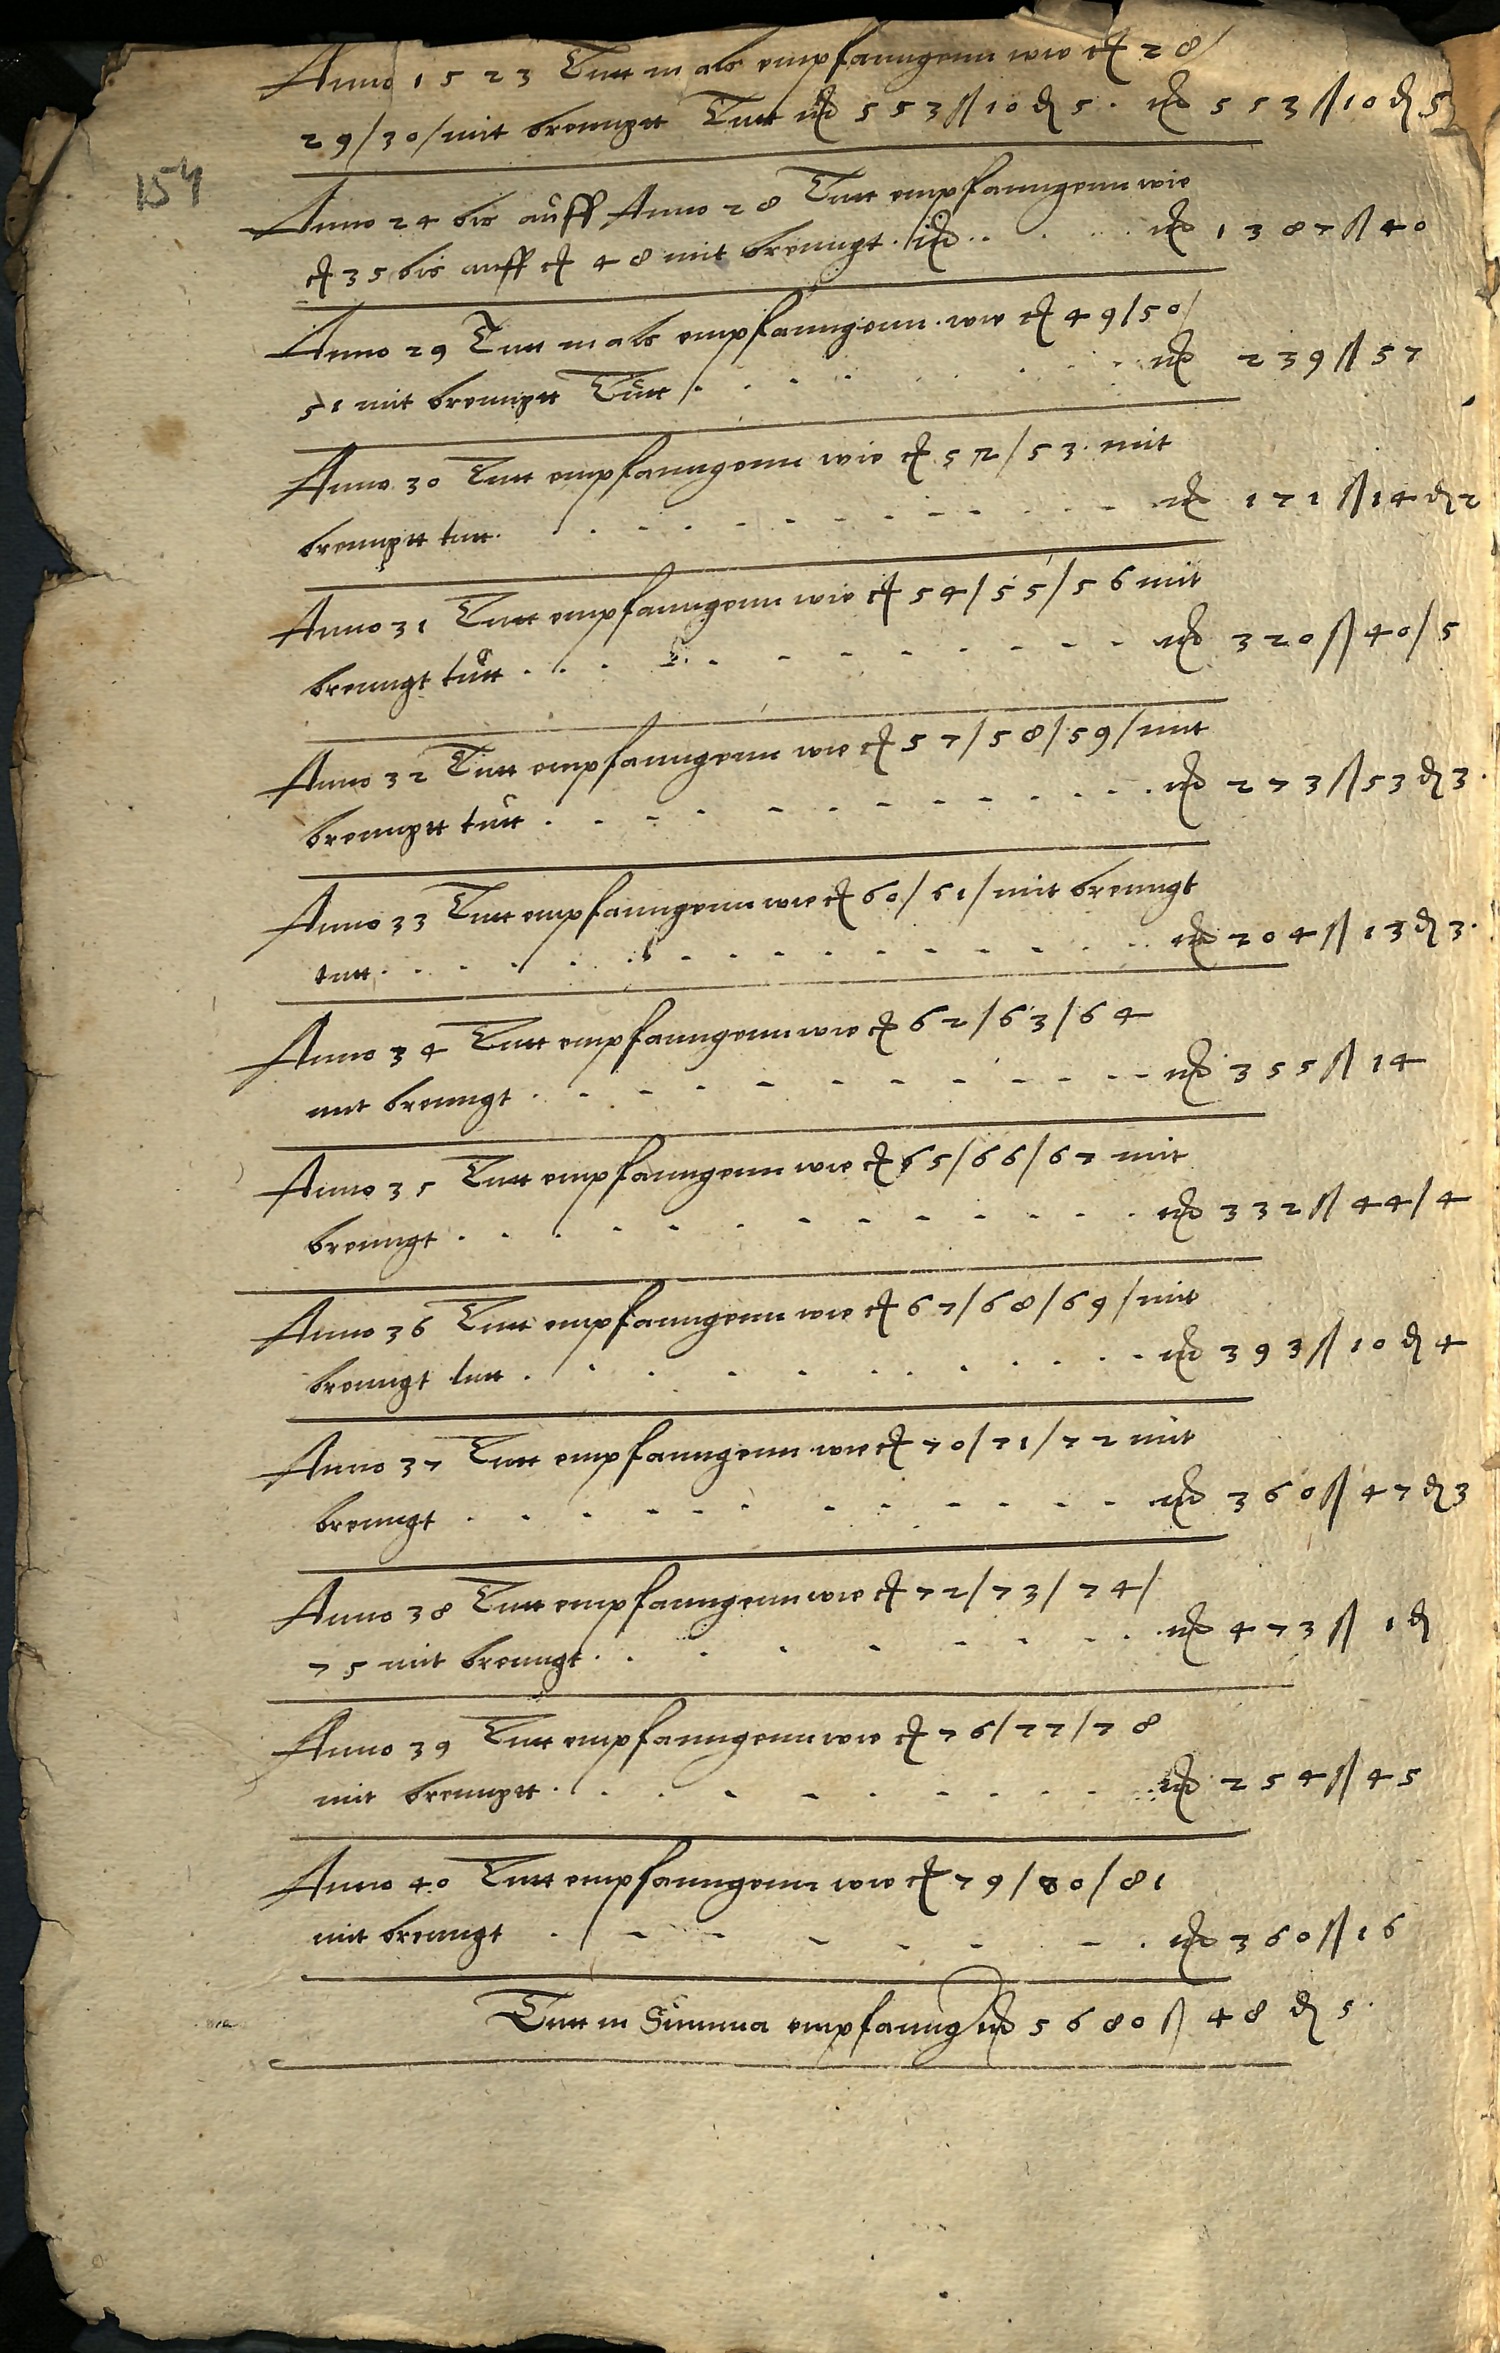 Anno 1523 Tutt in als empfanngenn wie 28/
29/30/ mit brenngtt Tutt 553 ß 10 ₰ 5. 553 ß 10 ₰ 5
154
Anno 24 bis auff Anno 28 Tutt empfanngenn wie
35 bis auff 48 mit brenngt. 1387 ß 40
Anno 29 Tutt in als empfanngenn. wie 49/50/
51 mit brenngtt Tutt/. 239 ß 57
Anno 30 Tutt empfanngenn wie 52/53. mit
brenngtt tutt. 171 ß 14 ₰ 2
Anno 31 Tutt empfanngenn wie 54/55/56 mit
brenngt tutt 320 ß 40/5
Anno 32 Tutt empfanngenn wie 57/58/59/ mit
brenngtt tutt 273 ß 53 ₰ 3.
Anno 33 Tutt empfanngenn wie 60/61/ mit brenngt
tutt. 204 ß 13 ₰ 3.
Anno 34 Tutt empfanngenn wie 62/63/64
mit brenngt 355 ß 14
Anno 35 Tutt empfanngenn wie 65/66/67 mit
brenngt 332 ß 44/4
Anno 36 Tutt empfanngenn wie 67/68/69/ mit
brenngt tutt 393 ß 10 ₰ 4
Anno 37 Tutt empfanngenn wie 70/71/72 mit
brenngt 360 ß 47 ₰ 3
Anno 38 Tutt empfanngenn wie 72/73/74/
75 mit brenngt. 473 ß 1 ₰
Anno 39 Tutt empfanngenn wie 76/77/78
mit brenngtt. 254 ß 45
Anno 40 Tutt empfanngenn wie 79/80/81
mit brenngt 360 ß 16
Tutt in Summa empfanng 5680 ß 48 ₰ 5.